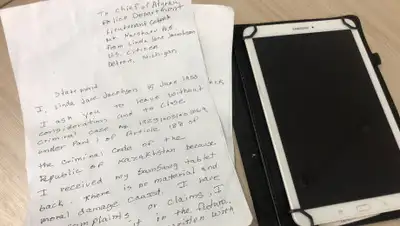 To Chief of Atyrau
Police Department
Lieutenant Colonel
Mr.
from Linda Jane Jacobson
U.S. citizen
Detroit, Michigan
Statement
I, Linda Jane Jacobson, 15 June 1955
I ask you to leave without
consideration and to close
criminal case №
under Part 1 of Article 188 of
the criminal Code of the
Republic of Kazakhstan because
I received my Samsung tablet
back. There is no material and
moral damage caused. I have
complaints or claims, I
in the future.
written with
SAMSUNG